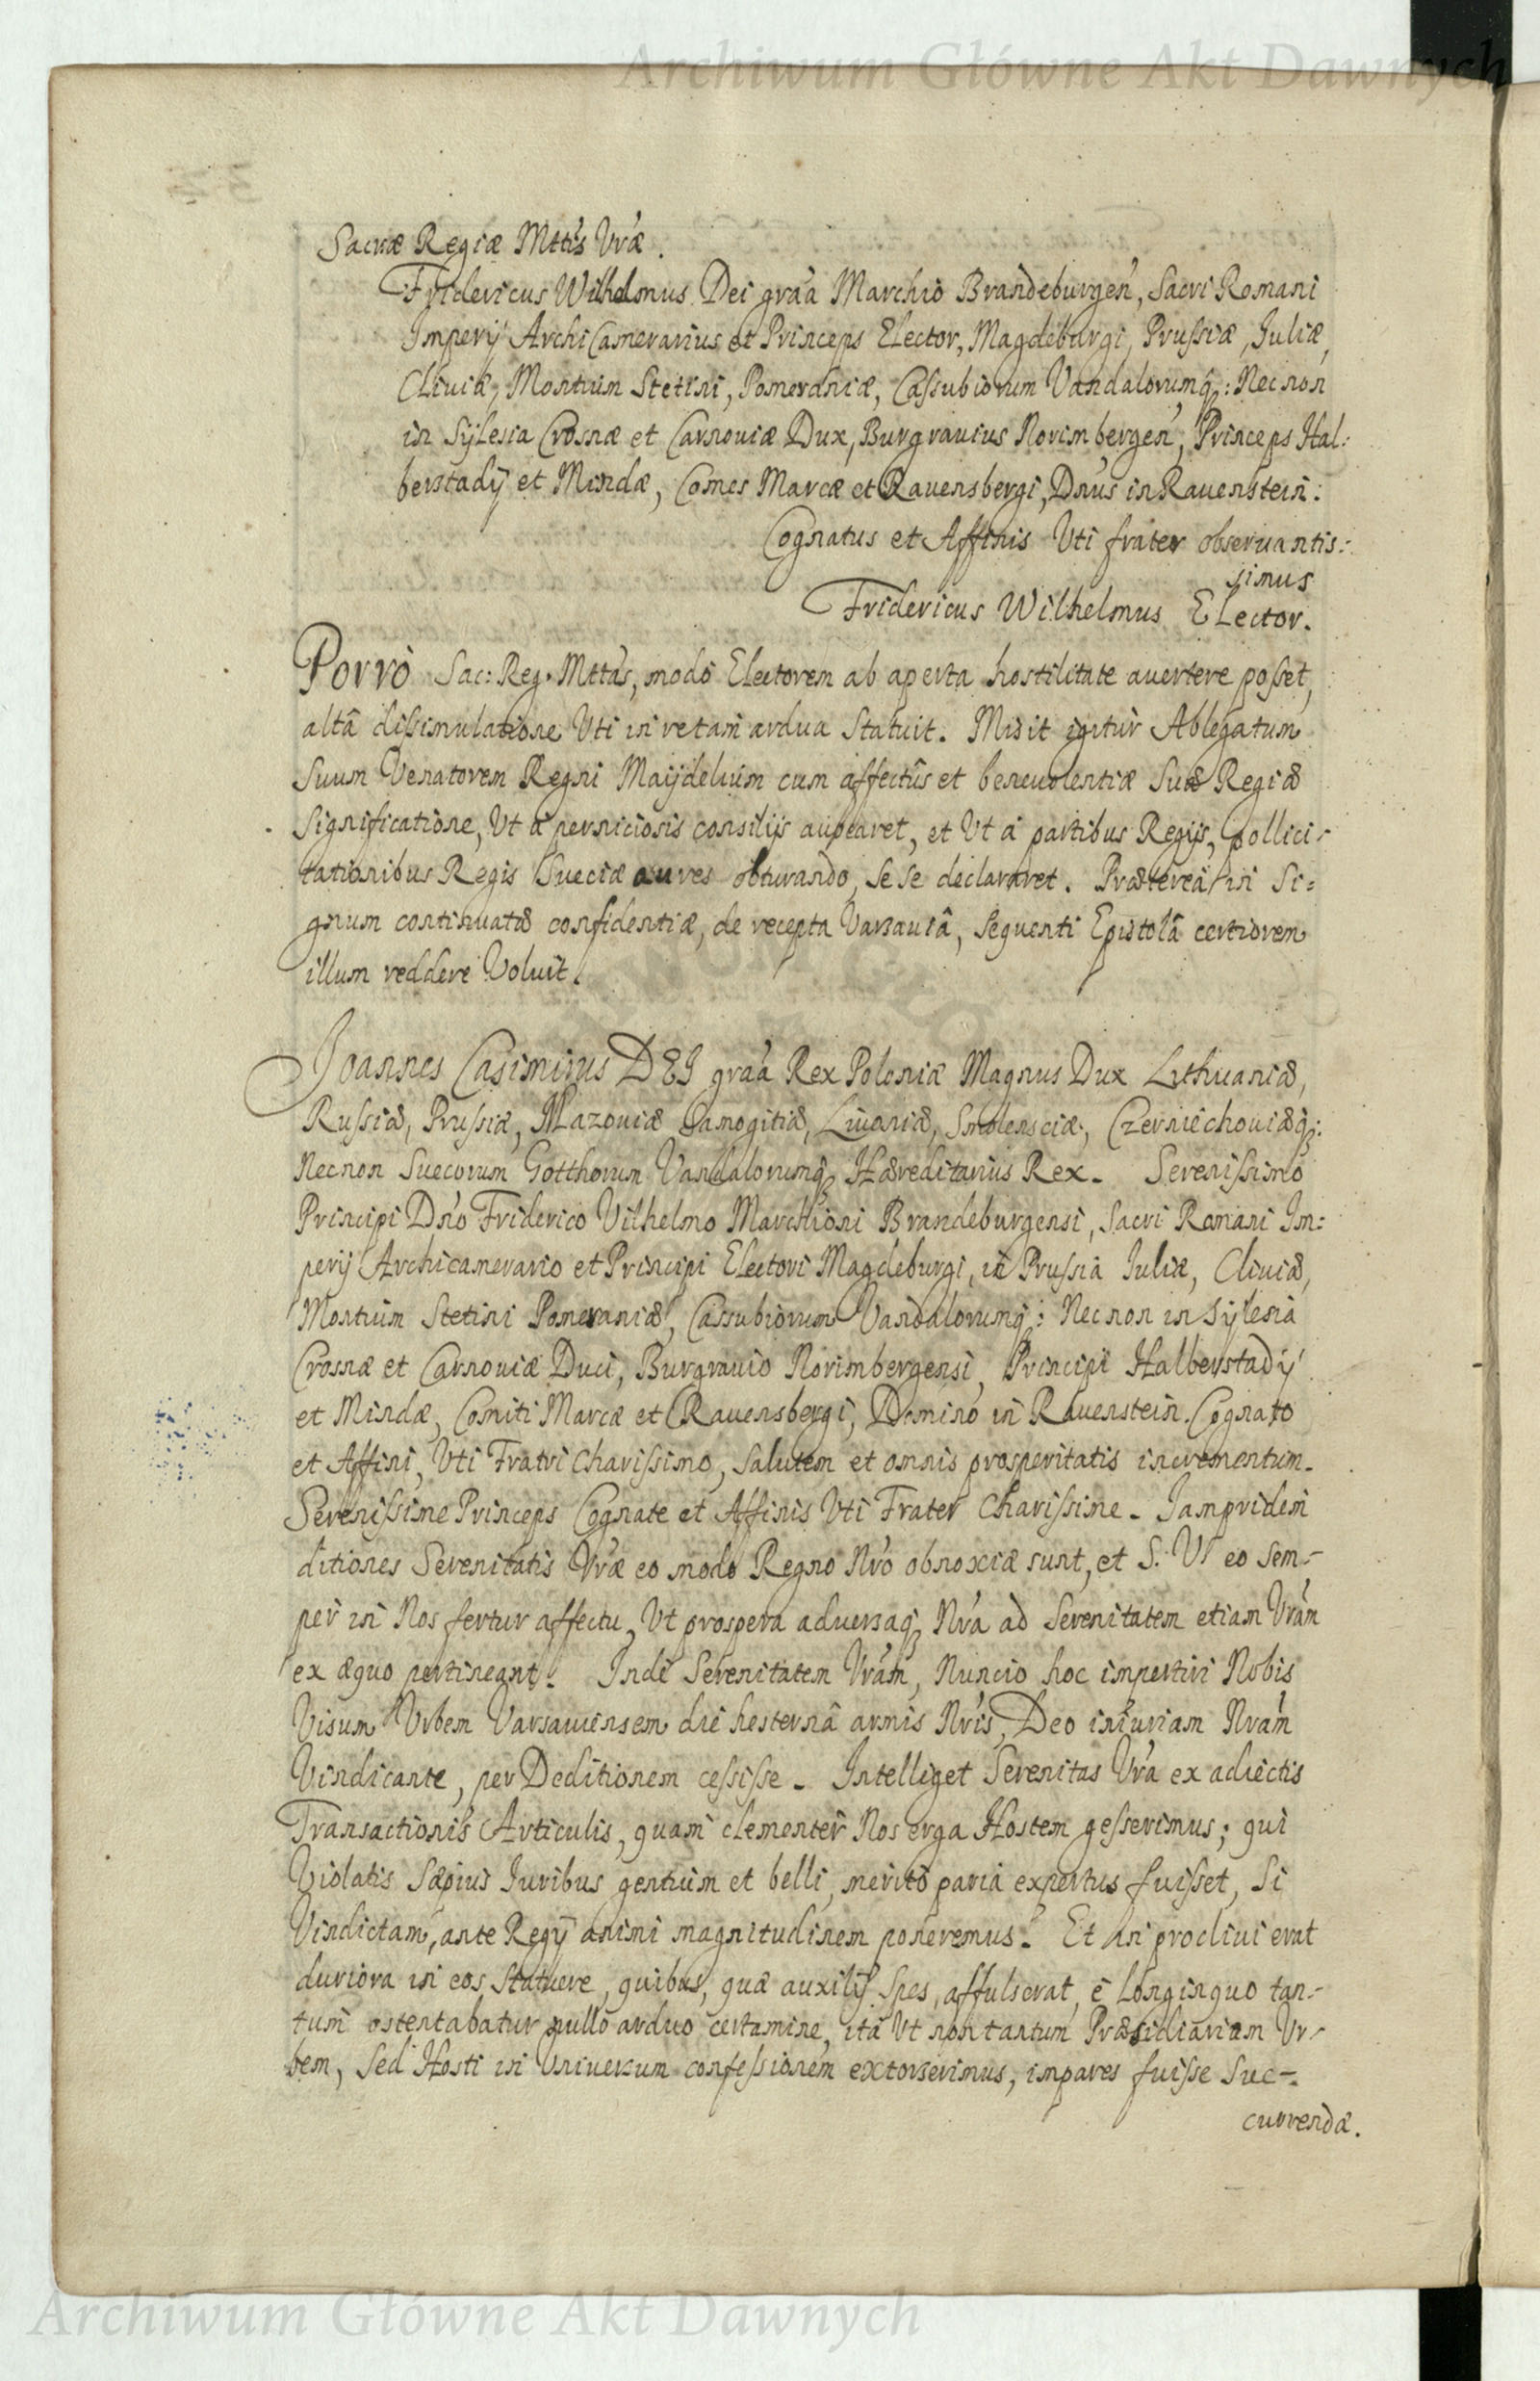 Archiwum Główne Akt Dawnych
Sacræ Regiæ Mttis Vræ.
Fridericus Wilhelmus Dei gra'a Marchio Brandeburgen', Sacri Romani
Imperij ArchiCamerarius et Princeps Elector, Magdeburgi, Prussiæ, Juliæ,
Cliviæ, Montium Stetini, Pomeraniæ, Cassubiorum Vandalorumq;: Nec non
in Sylesia Crosnæ et Carnouiæ Dux, Burgrauius Norimbergen', Princeps Hal:
berstadij et Mindæ, Comes Marcæ et Rauensbergi, Dnus in Rauenstein:
Cognatus et Affinis Vti frater obseruantis:
simus
Fridericus Wilhelmus Elector.
Porrò Sac: Reg. Mttas, modò Electorem ab aperta hostilitate auertere posset,
altâ dissimulatione Vti in re tam ardua Statuit. Misit igitur Ablegatum
Suum Venatorem Regni Maijdelium cum affectûs et beneuolentiæ Suæ Regiæ
Significatione, Vt à perniciosis consilijs auocaret, et Vt à partibus Regijs, pollici-
tationibus Regis Sueciæ aures obturando, se se declararet. Prætereà in Si=
gnum continuatæ confidentiæ, de recepta Varsauiâ, sequenti Epistolâ certiorem
illum reddere Voluit.
Joannes Casimirus DEI gra'a Rex Poloniæ Magnus Dux Lithuaniæ,
Russiæ, Prussiæ, Mazouiæ Samogitiæ, Liuoniæ, Smolensciæ, Czerniechouiæq;:
Nec non Suecorum Gotthorum Vandalorumq; Hæreditarius Rex. Serenissimo
Principi Dno Friderico Vilhelmo Marchioni Brandeburgensi, Sacri Romani Im:
perij Archicamerario et Principi Electori Magdeburgi, in Prussia Juliæ, Cliuiæ,
Montium Stetini Pomeraniæ, Cassubiorum Vandalorumq;: Nec non in Sylesia
Crosnæ et Carnouiæ Duci, Burgrauio Norimbergensi, Principi Halberstadij
et Mindæ, Comiti Marcæ et Rauensbergi, Domino in Rauenstein. Cognato
et Affini, Vti Fratri Charissimo, Salutem et omnis prosperitatis incrementum.
Serenissime Princeps Cognate et Affinis Vti Frater Charissime. Jampridem
ditiones Serenitatis Vræ eo modo Regno Nro obnoxiæ sunt, et S. V. eo sem-
per in Nos fertur affectu, Vt prospera aduersaq; Nra ad Serenitatem etiam Vram
ex æquo pertineant. Inde Serenitatem Vram, Nuncio hoc impertiri Nobis
Visum Vrbem Varsauiensem die hesternâ armis Nris, Deo iniuriam Nram
Vindicante, per Deditionem cessisse. Intelliget Serenitas Vra ex adiectis
Transactionis Articulis, quam clementer Nos erga Hostem gesserimus; qui
Violatis sæpius Juribus gentium et belli, merito paria expertus fuisset, Si
Vindictam, ante Regij animi magnitudinem poneremus. Et in procliui erat
duriora in eos Statuere, quibus, quæ auxilij Spes, affulserat, è longinquo tan-
tum ostentabatur nullo arduo certamine, ita Vt non tantum Præsidiariam Vr-
bem, Sed Hosti in Vniuersum confessionem extorserimus, impares fuisse Suc-
currendæ.
Archiwum Główne Akt Dawnych